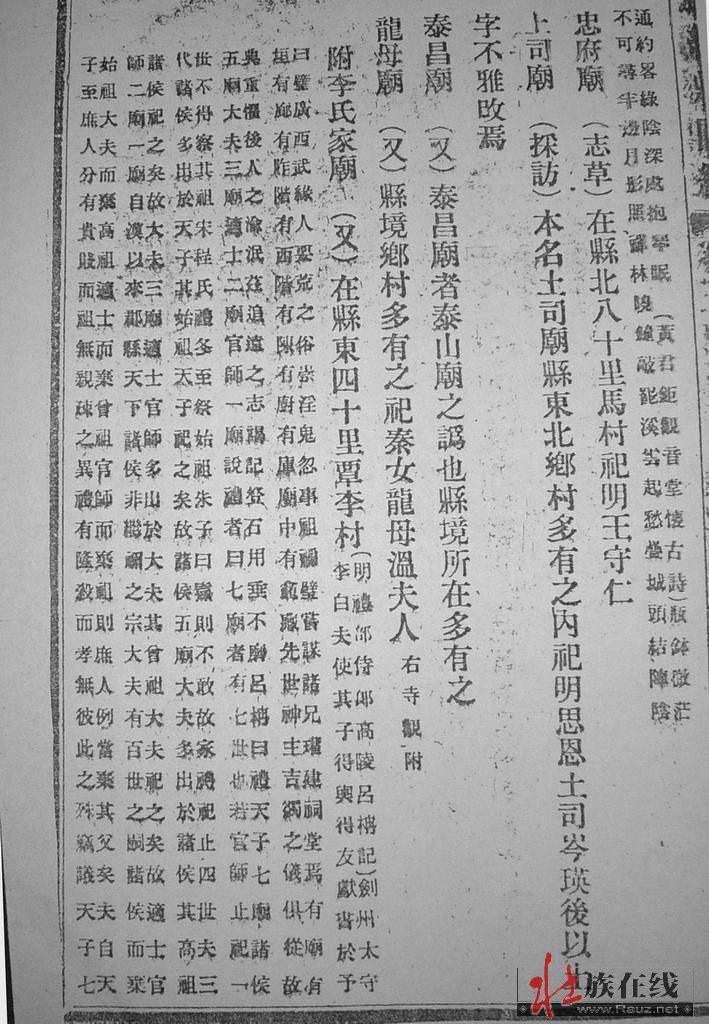 通約畧綠陰深處抱琴眠(黃君鉅觀音堂懷古詩)瓶鉢微茫
不可尋半邊月影照禪林曉鐘敲罷溪雲起愁疊城頭結陣陰
忠府廟(志草)在縣北八十里馬村祀明王守仁
上司廟(採訪)本名土司廟縣東北鄉村多有之內祀明思恩土司岑瑛後以土
字不雅改焉
泰昌廟(又)泰昌廟者泰山廟之譌也縣境所在多有之
龍母廟(又)縣境鄉村多有之祀秦女龍母溫夫人 右寺觀附
附李氏家廟(又)在縣東四十里覃李村(明禮部侍郎高陵呂柟記)劍州太守
李白夫使其子得輿得友獻書於予
曰璧廣西武緣人荒之俗崇淫鬼忽事祖禰璧嘗謀諸兄瓘建祠堂焉有廟有
垣有廊有阼階有西階有陳有廚有庫廟中有龕先世神主吉蠲之儀俱從故
典重懼後人之淪泯茲追遠之志謁記登石用垂不呂柟曰禮天子七廟諸侯
五廟大夫三廟適士二廟官師一廟說禮者曰七廟者有七世也若官師止祀一
世不得察其祖宋程氏禮冬至祭始祖朱子曰則不敢故家禮祀止四世夫三
代諸侯多出於天子其始祖天子祀之矣故諸侯五廟大夫多出於諸侯其高祖
諸侯祀之矣故大夫三廟適士官師多出於大夫其曾祖大夫祀之矣故適士官
師二廟一廟自漢以來郡縣天下諸侯非繼禰之宗大夫有百世之嗣諸侯而棄
始祖大夫而棄高祖適士而棄曾祖官師而棄祖則庶人例當棄其父矣夫自天
子至庶人分有貴賤而祖無親疎之異禮有隆殺而孝無彼此之殊竊議天子七
壮族在线
www.Rauz.net